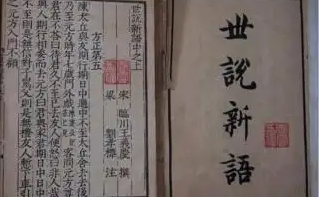 世說新語
世說新語中之上
宋 臨川王義慶 撰
梁 劉孝標 注
方正第五
陳太丘與友期行期日中過中不至太丘舍去去後
乃至元方時年七歲門外戲客問元方尊
君在不答曰待君久不至已去友人便怒曰非人哉
與人期行相委而去元方曰君與家君期日中日中
不至則是無信對子罵父則是無禮友人慙下車引
之元方入門不顧